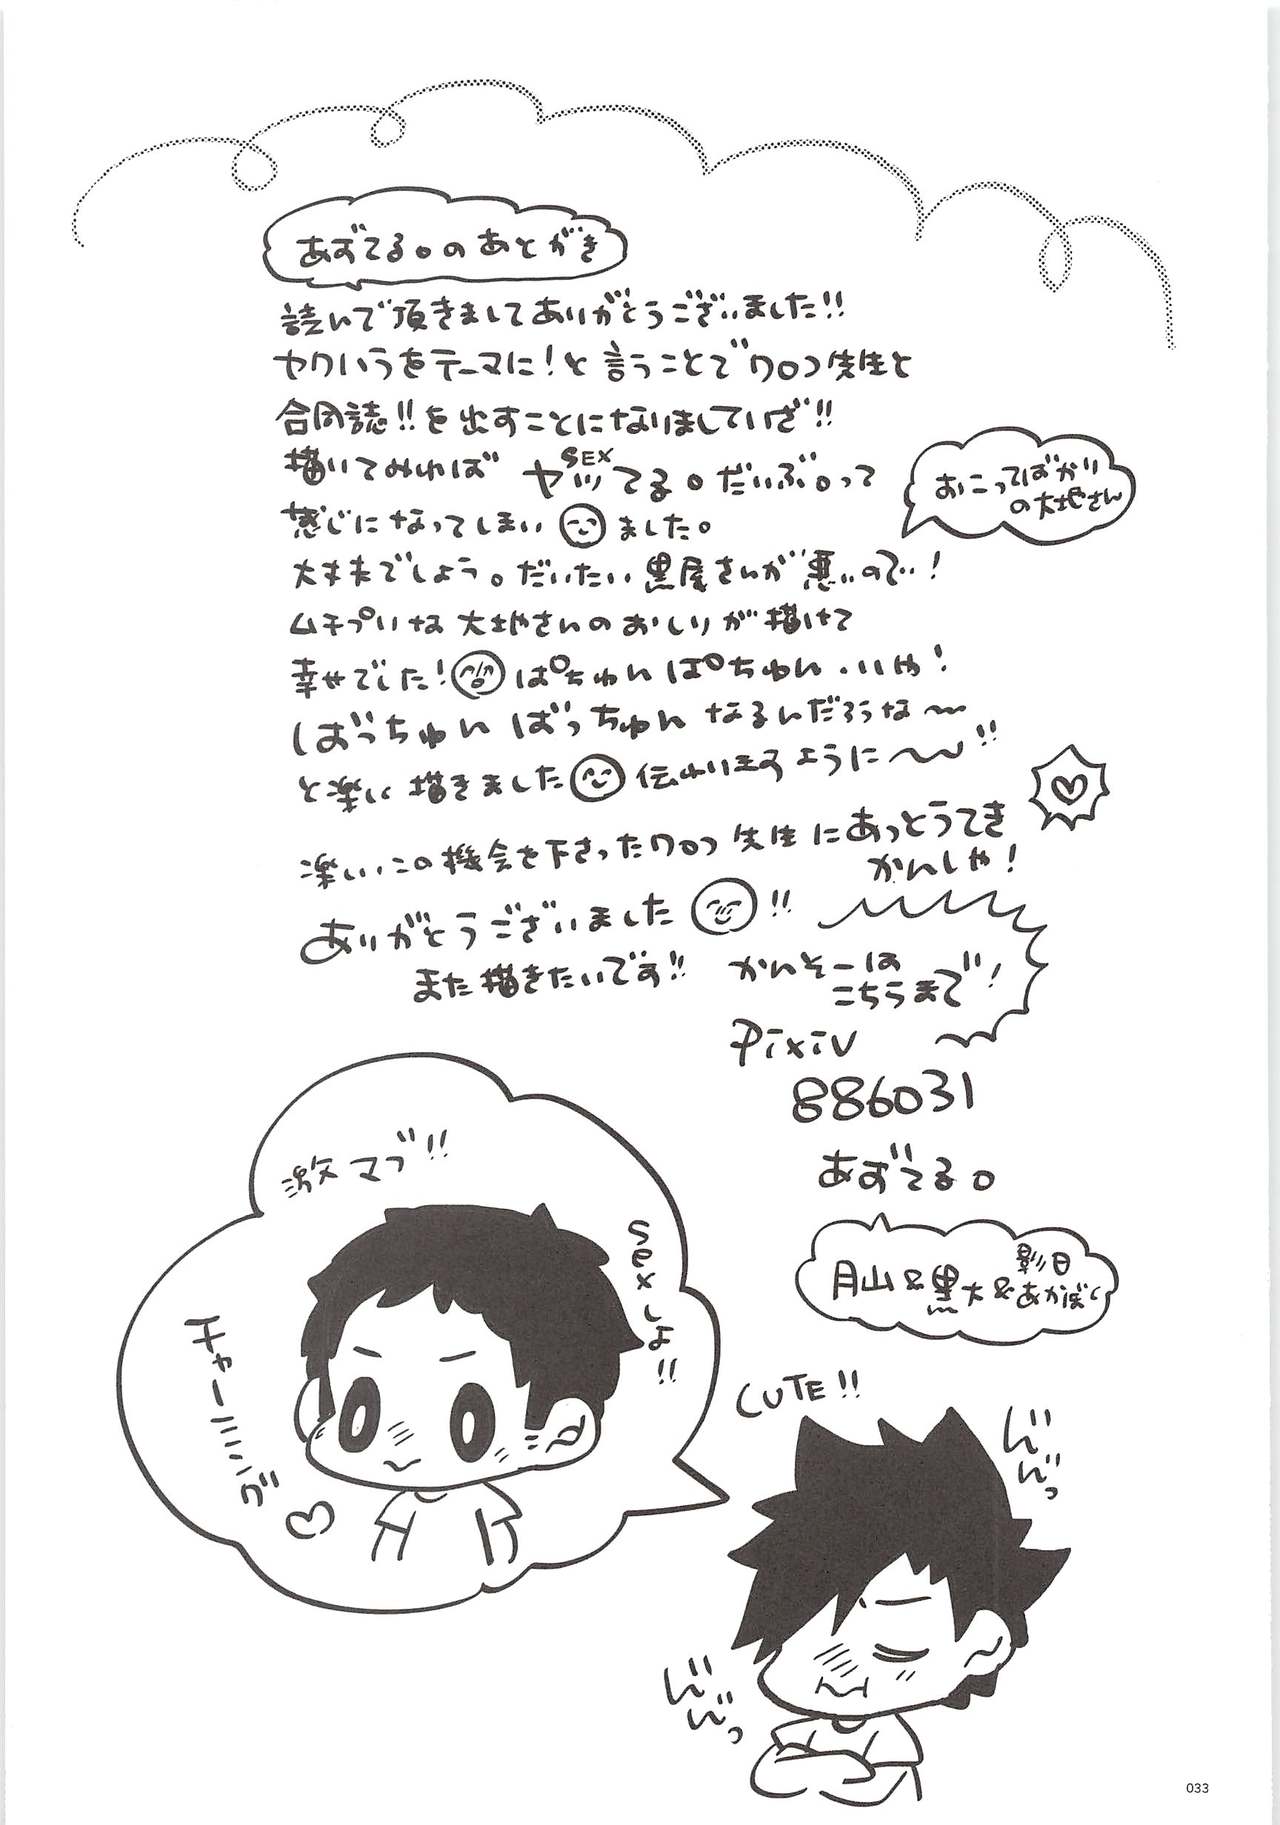 あずてる。のあとがき
読んで頂きましてありがとうございました!!
ヤクいうをテーマに!と言うことでクロコ先生と
合同誌!!を出すことになりまして
描いてみれば ヤッてる。だいぶ。って
SEX
感じになってしまい ました。
おこってばかり
の大地さん
大丈夫でしょう。だいたい黒尾さんが悪いので!
ムチプリな大地さんのおしりが描けて
幸せでした! ぱちゅんぱちゅん‥いや!
ばっちゅんばっちゅんなるんだろうな〜
と楽しく描きました 伝わりますように〜!!
楽しいこの機会を下さったクロコ先生にあっとうてき
かんしゃ!
ありがとうございました !!
また描きたいです!!
かんそーは
こちらまで!
Pixiv
886031
あずてる。
月山&黒大&あかぼく
影日
激マブ!!
sexしよ!!
チャーミング
CUTE!!
んんっ
んんっ
033